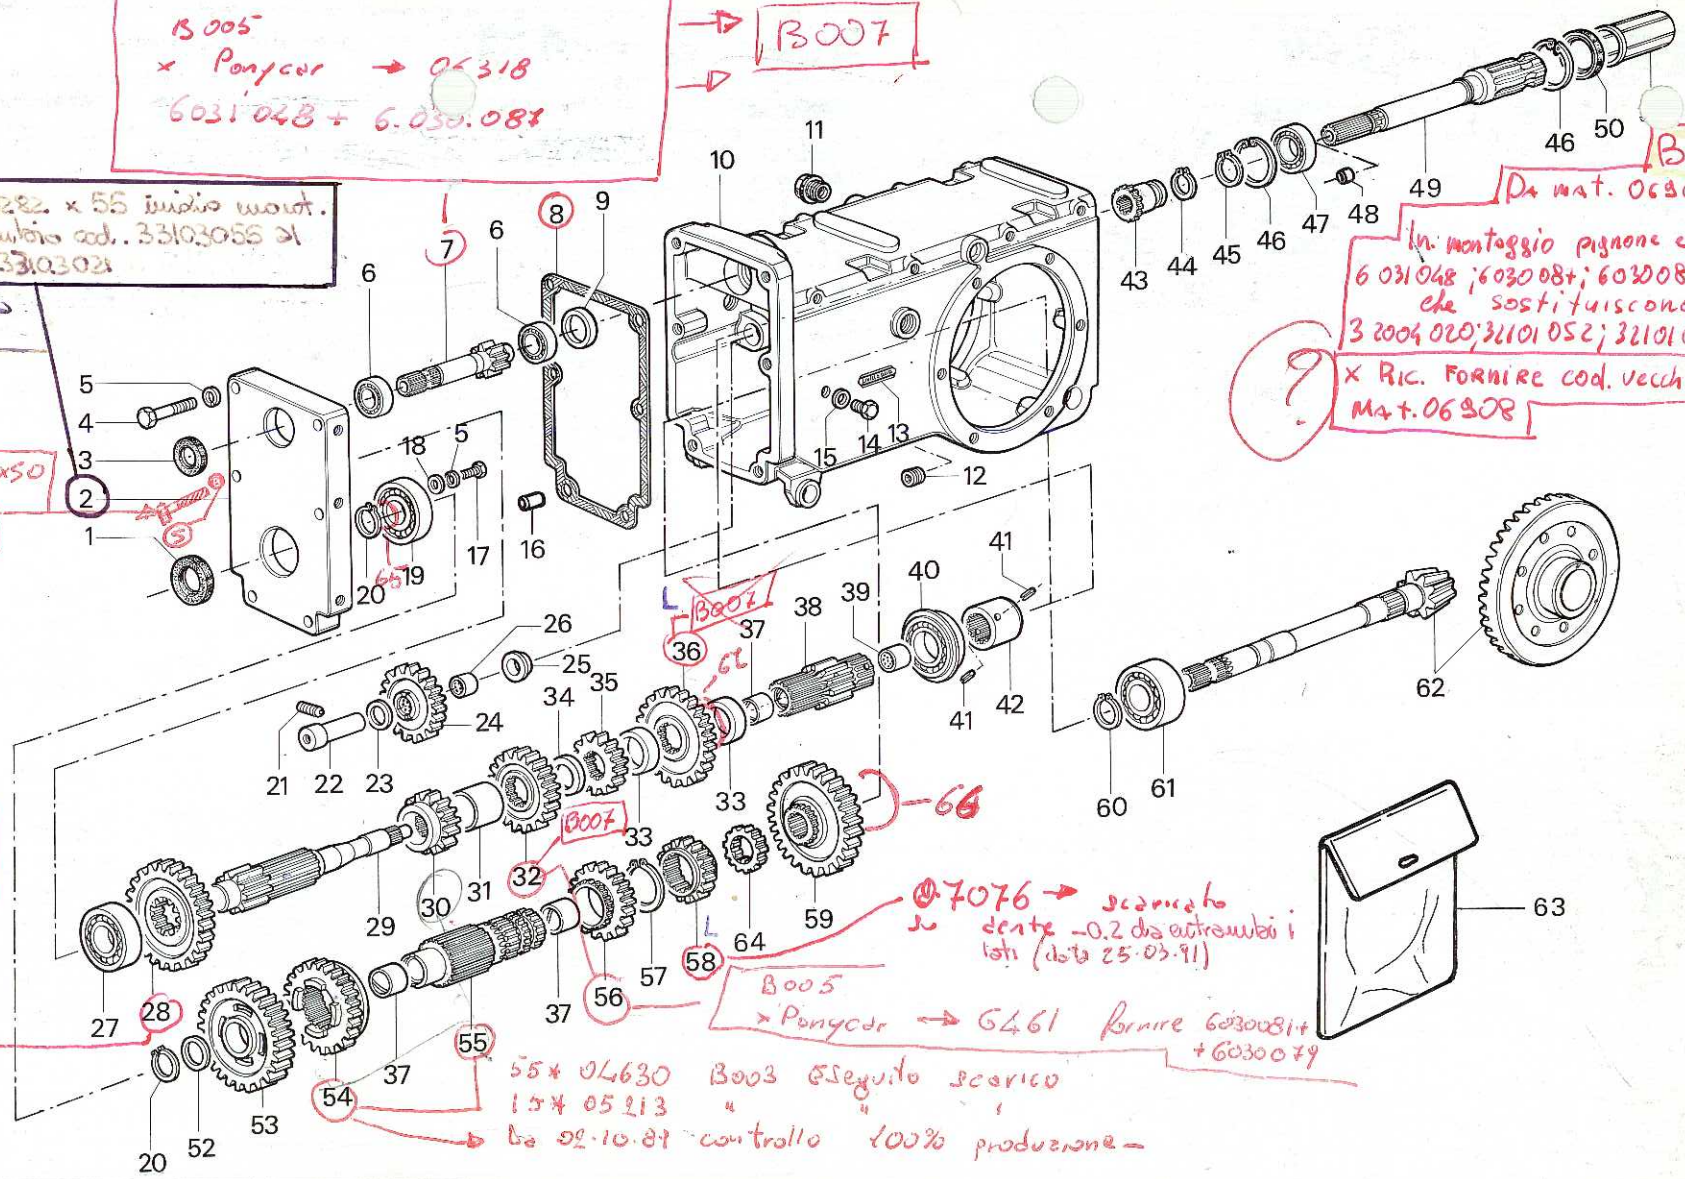 B005
x Ponycar → 06318
6031048 + 6.030.087
B007
282 x 55 inizio mont.
cod. 33103055 al
33103021
x50
Da mat.
In montaggio pignone e
6031048; 603008
che sostituiscono
32004020; 32101052; 32101
?
x Ric. Fornire cod. vecch
Mat. 06908
11
10
9
8
6
7
6
5
4
3
2
1
5
18
5
17
19
65
20
16
15
14
13
12
43
44
45
46
47
48
49
46
50
B007
L
36
37
38
39
40
41
41
42
26
25
24
23
22
21
34
35
33
33
62
66
60
61
62
63
27
28
29
30
31
32
B007
59
64
58
L
57
56
55
54
53
52
20
37
37
7076 → scaricato
su dente -0.2 da entrambi i
lati (data 25.03.91)
B005
x Ponycar → 6461 Fornire 6030081+
+6030079
55* 04630 B003 Eseguito scarico
15* 05213 " " "
controllo 100% produzione